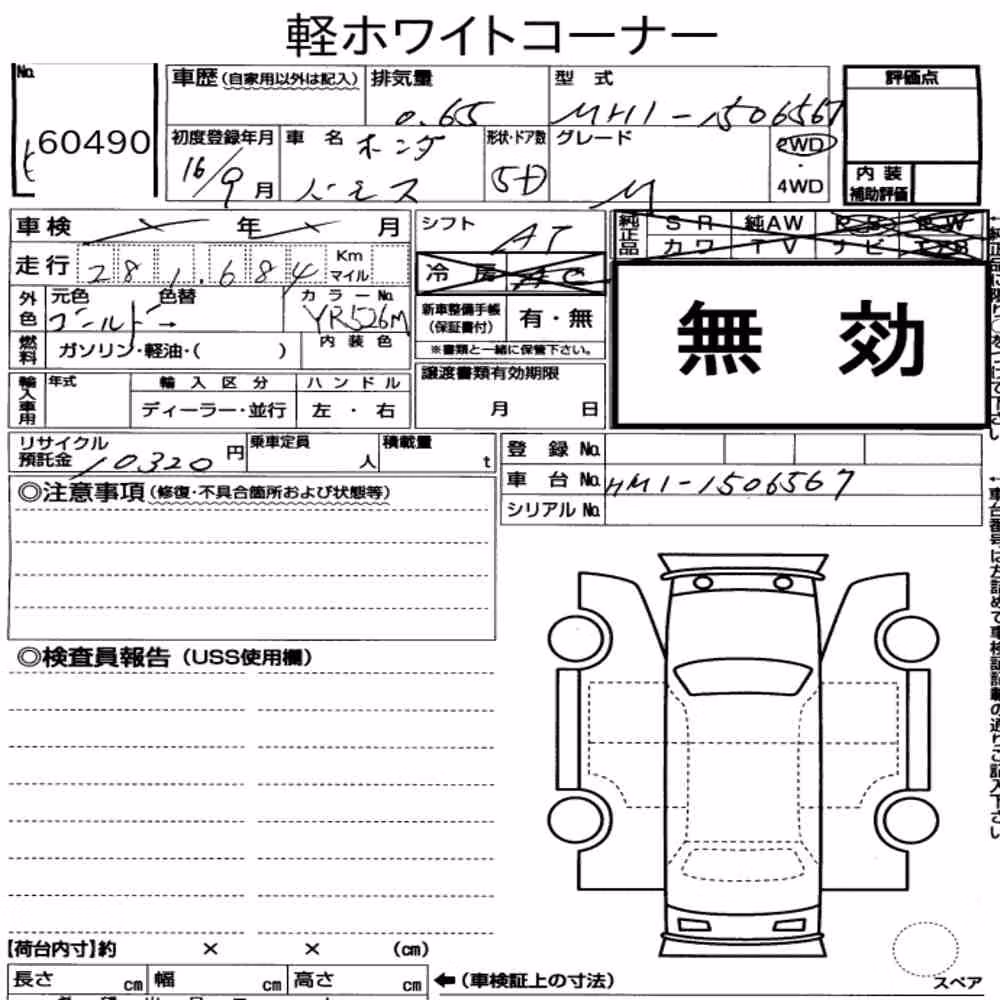 軽ホワイトコーナー
No.
60490
車歴(自家用以外は記入)
排気量
0.65
型 式
MHM1-1506567
評価点
初度登録年月
16/9月
車 名
ホンダ
バモス
形状・ドア数
5D
グレード
M
2WD
・
4WD
内 装
補助評価
車検 年 月
シフト
AT
純正品
SR 純AW PS PW
カワ TV ナビ
走行
281,684
Km
マイル
冷 房 AC
無 効
外色
元色
ゴールド
色替
→
カラーNo.
YR526M
新車整備手帳
(保証書付)
有・無
※書類と一緒に保管下さい。
燃料
ガソリン・軽油・( )
内 装 色
輸入車用
年式
輸 入 区 分
ハ ン ド ル
ディーラー・並行
左 ・ 右
譲渡書類有効期限
月 日
リサイクル
預託金
10320
円
乗車定員
人
積載量
t
登 録 No.
車 台 No.
HM1-1506567
シリアル No.
◎注意事項(修復・不具合箇所および状態等)
◎検査員報告(USS使用欄)
【荷台内寸】約 × × (cm)
長さ cm 幅 cm 高さ cm
←(車検証上の寸法)
スペア
←車台番号は左詰めで車検証記載の通りご記入下さい